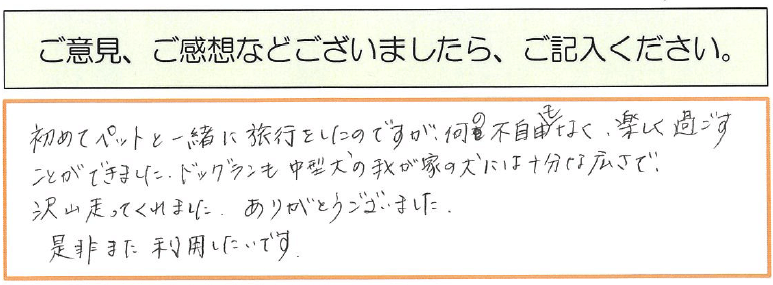 ご意見、ご感想などございましたら、ご記入ください。
初めてペットと一緒に旅行をしたのですが、何の不自由もなく、楽しく過ごす
ことができました。ドッグランも中型犬の我が家の犬には十分な広さで、
沢山走ってくれました。ありがとうございました。
是非また利用したいです。